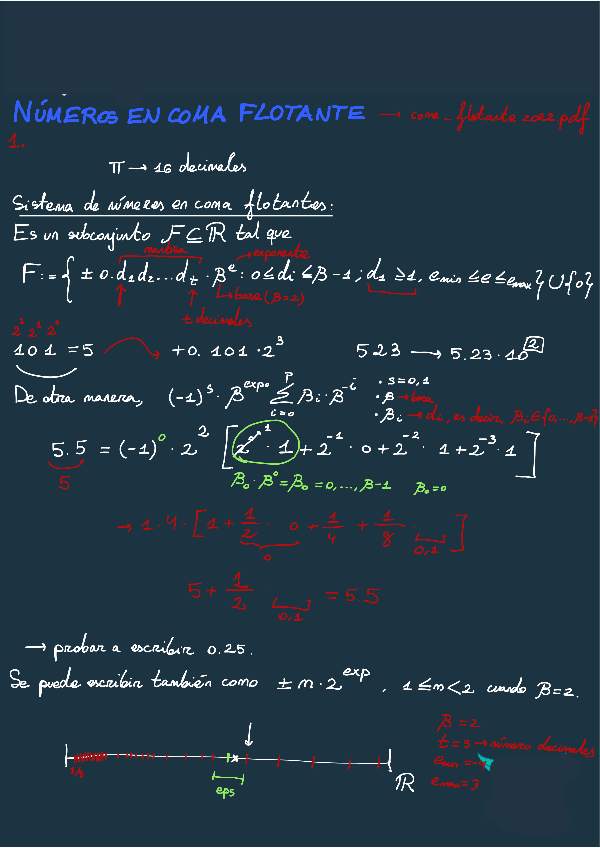 NÚMEROS EN COMA FLOTANTE → coma_flotante2022.pdf
1.
π → 16 decimales
Sistema de números en coma flotantes:
Es un subconjunto F ⊆ ℝ tal que
mantisa exponente
F := { ± 0.d₁d₂...d_t · β^e : 0 ≤ di ≤ β-1 ; d₁ ≥ 1, e_min ≤ e ≤ e_max } ∪ {0}
base (β=2)
t decimales
2² 2¹ 2⁰
101 = 5 → +0.101·2³ 523 → 5.23·10^2
De otra manera, (-1)^s · β^expo Σ_{i=0}^{p} βi·β^-i
· s=0,1
· β → base
· βi → di, es decir, βi ∈ {0,...,β-1}
5.5 = (-1)^0 · 2^2 [ 2^0 · 1 + 2^-1 · 0 + 2^-2 · 1 + 2^-3 · 1 ]
1
5
β₀·β^0 = β₀ = 0,...,β-1 β₀=0
→ 1·4·[ 1 + 1/2 · 0 + 1/4 + 1/8 · ]
0 0,1
5 + 1/2 = 5.5
0,1
→ probar a escribir 0.25.
Se puede escribir también como ± m·2^exp, 1 ≤ m < 2 cuando β=2.
β = 2
t = 3 → número decimales
e_min =
e_max = 3
eps
ℝ